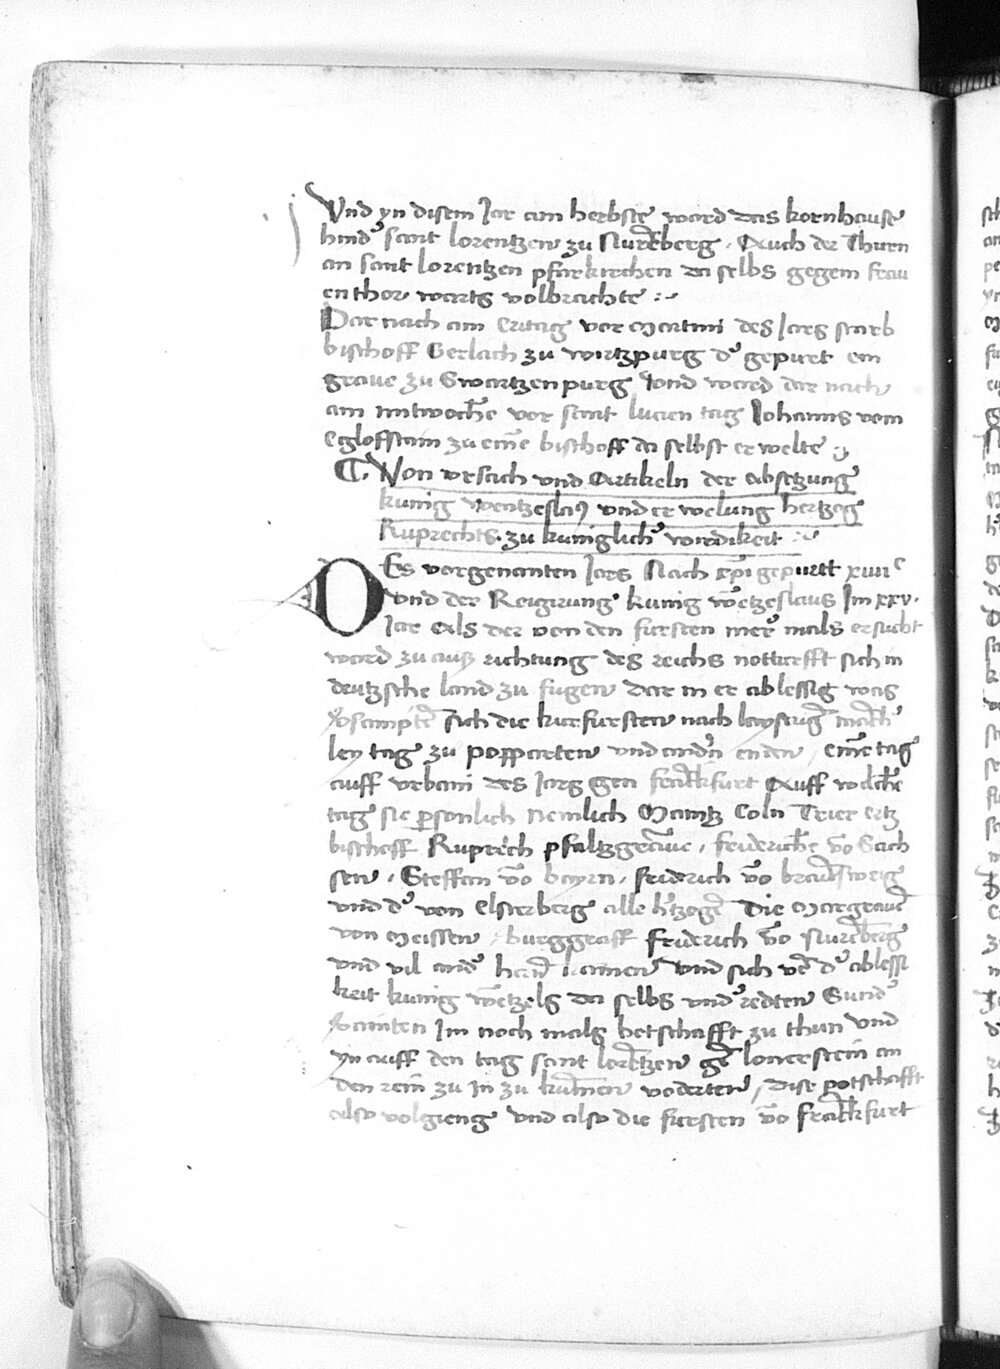 Vnd yn disem Jar am herbste ward das kornhause
hind' sant lorentzen zu Nuremberg . Auch der Thurn
an sant lorentzen pfarkirchen da selbs gegem frau
en thor warts volbrachte :~
Dar nach am Eritag vor Martini des Jars starb
bischoff Gerlach zu wirtzpurg d' gepurt ein
graue zu Swartzenpurg Vnd ward dar nach
am mitwoche vor sant lucien tag Johanns vom
Eglofstain zu eine bischoff da selbst erwelte :~
C Von vrsach vnd Artikeln der Absetzung
kunig wentzeslaus vnd erwelung hertzog
Ruprechts zu kuniglich' wirdikeit :~
DEs vorgenanten Jars Nach xpi gepurtt xiiii c
vnd der Reigirung kunig wentzeslaus Im xxv .
Jar Als der von den fursten mer mals ersucht
ward zu auß richtung des reichs notturfft sich in
deutzsche land zu fugen dar in er ablessig was
Vosampten sich die kurfursten nach layserug
ley tag zu popparten vnd andn enden / eine tag
auff vrbani des Jars gen franckfurt Auff welche
tage sie personlich nemlich Maintz Coln Trier ertz
bischoff Ruprech pfaltzgraue , friderich vo Sach
sen , Steffan vo bayrn , fridrich vo braunsweig
vnd d' von Elsterberg alle h'tzoge Die Margraue
von Meissen , burggraff friderich vo Nuremberg
vnd vil and' hern kamen Vnd sich d' ablessi
keit kunig wetzels da selbs vnd'redten Sund'
Vainten Im noch mals botschafft zu thun vnd
yn auff den tag sant lorentzen ge lonerstein an
den rein zu In zu kumen voderten , dise potschafft
also volgieng vnd also die fursten vo franckfurt